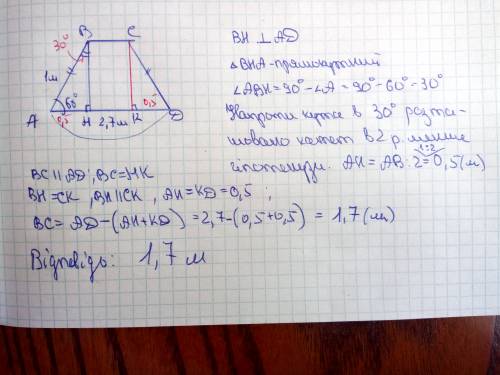 B C
30°
1м
60° 0,5
A 0,5 H 2,7м K D
BH ⊥ AD
△ BHA - прямокутний
∠ABH = 90° - ∠A = 90° - 60° - 30°
Напроти кута в 30° розта-
шовано катет в 2 р. менше
гіпотенузи. AH = AB : 2 = 0,5 (м)
1:2
BC || AD ; BC = HK
BH = CK , BH || CK , AH = KD = 0,5 ;
BC = AD - (AH + KD) = 2,7 - (0,5 + 0,5) = 1,7 (м)
Відповідь: 1,7 м